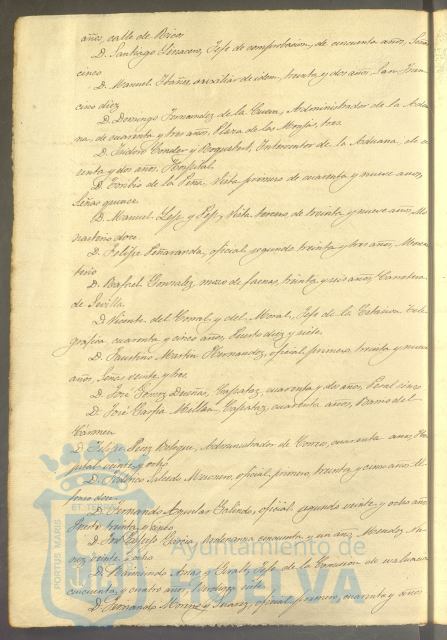 años, calle de Rico
D. Santiago Linacero, Jefe de comprobacion, de cincuenta años, Señas
cinco
D. Manuel Ibañez, auxiliar de idem, treinta y dos años, San Fran
cisco diez
D. Domingo Fernandez de la Cueva, Administrador de la Adua
na, de cuarenta y tres años, Plaza de las Monjas, tres
D. Isidoro Conder y Boquebert, Interventor de la Aduana, de cu
renta y dos años, Hospital
D. Toribio de la Peña, Vista primero de cuarenta y nueve años,
Señas quince
D. Manuel y Vista tercero, de treinta y nueve años, Mo
nasterio doce
D. Felipe Peñaranda, oficial segundo treinta y tres años, Monas
terio
D. Rafael Gonzalez, mozo de faenas, treinta y seis años, Carretera
de Sevilla
D. Vicente del Corral y del Moral, Jefe de la Estacion Tele
grafica cuarenta y cinco años, Puerto diez y siete
D. Faustino Martin Hernandez, oficial primero, treinta y nueve
años, Señas veinte y tres
D. José Gomez Dueñas, Capataz, cuarenta y dos años, Peral cinco
D. José Garcia Millan, Capataz, cuarenta años, Barrio del
Cármen
D. Felipe Perez Administrador de Correos, cuarenta años, Hos
pital veinte y ocho
D. Federico Salcedo oficial primero, treinta y cinco años
fonso doce
D. Fernando Aguilar Galindo, oficial segundo veinte y ocho años
Puerto treinta y cinco
D. José Garcia, Ordenanza cincuenta y un años, Mendez Nu
ñez veinte y ocho
D. Raimundo Arias y Jefe de la Comision de evaluacion
cincuenta y cuatro años, siete
D. Fernando Moreno y Suarez, oficial primero, cuarenta y años
PORTUS MARIS ET TERRAE
Ayuntamiento de
HUELVA